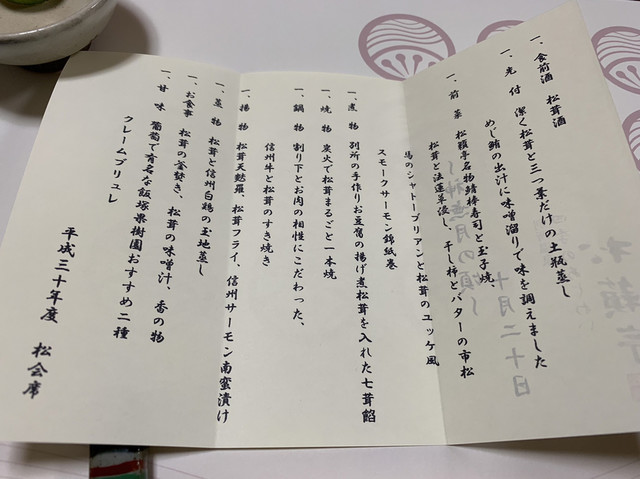 一、食前酒 松茸酒
一、先付 潔く松茸と三つ葉だけの土瓶蒸し
めじ鮪の出汁に味噌溜りで味を調えました
一、前菜 松籟亭名物鯖棒寿司と玉子焼
松茸と法蓮草浸し、干し柿とバターの市松
馬のシャトーブリアンと松茸のユッケ風
スモークサーモン錦紙巻
一、煮物 別所の手作りお豆富の揚げ煮松茸を入れた七茸餡
一、焼物 炭火で松茸まるごと一本焼
一、鍋物 割り下とお肉の相性にこだわった、
信州牛と松茸のすき焼き
一、揚物 松茸天麩羅、松茸フライ、信州サーモン南蛮漬け
一、蒸物 松茸と信州白鶏の玉地蒸し
一、お食事 松茸の釜焚き、松茸の味噌汁、香の物
一、甘味 葡萄で有名な飯塚果樹園おすすめ二種
クレームブリュレ
平成三十年度 松会席
十月二十日
～神無月の頃～